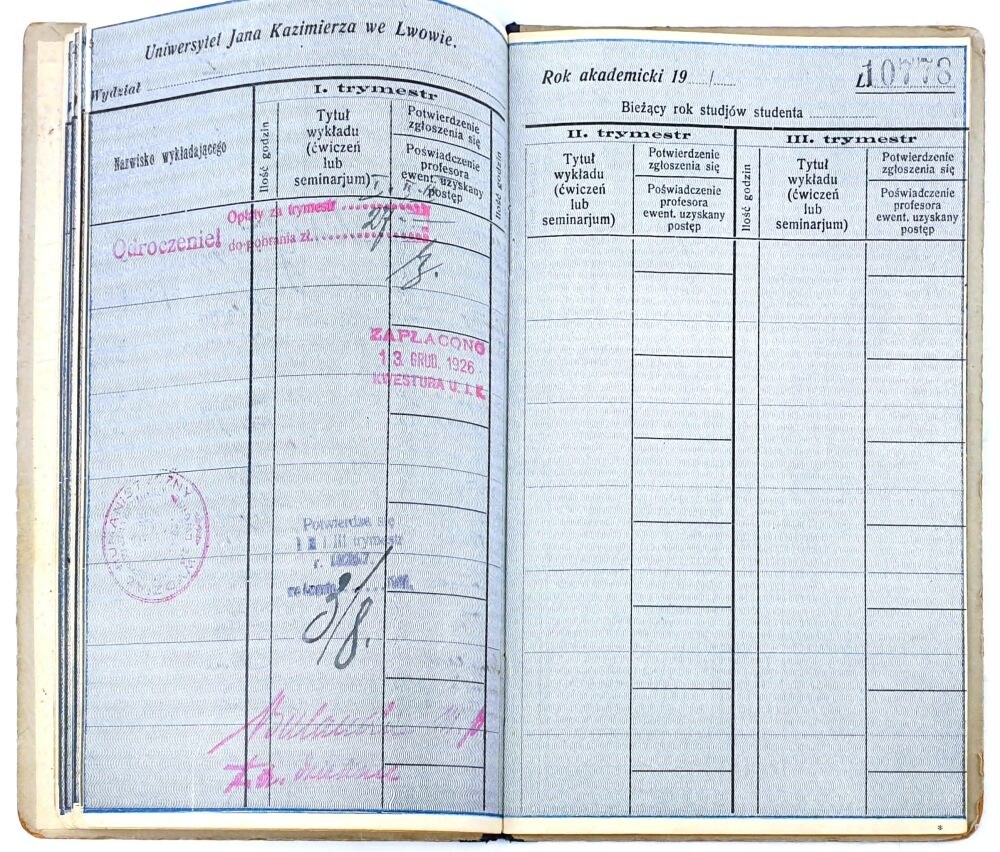 Uniwersytet Jana Kazimierza we Lwowie.
Wydział
Nazwisko wykładającego
Ilość godzin
I. trymestr
Tytuł
wykładu
(ćwiczeń
lub
seminarjum)
Potwierdzenie
zgłoszenia się
Poświadczenie
profesora
ewent. uzyskany
postęp
Ilość godzin
Opłaty za trymestr
27.-
Odroczenie!
do pobrania zł.
27
ZAPŁACONO
13. GRUD. 1926
KWESTURA U. J. K.
HUMANISTYCZNY
WYDZIAŁ
Potwierdza się
i III trymestr
r.
we Lwowie
3/8.
Rok akademicki 19 /
L. 10778
Bieżący rok studjów studenta
II. trymestr
Tytuł
wykładu
(ćwiczeń
lub
seminarjum)
Potwierdzenie
zgłoszenia się
Poświadczenie
profesora
ewent. uzyskany
postęp
Ilość godzin
III. trymestr
Tytuł
wykładu
(ćwiczeń
lub
seminarjum)
Potwierdzenie
zgłoszenia się
Poświadczenie
profesora
ewent. uzyskany
postęp
*